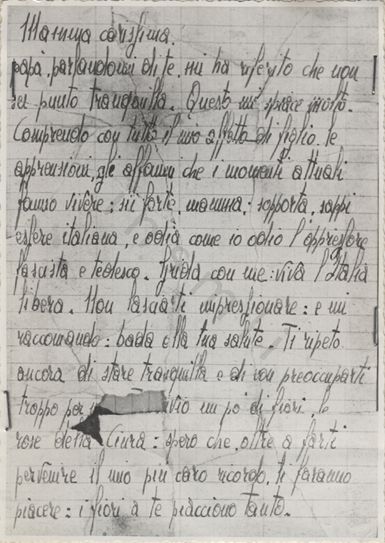 Mamma carissima,
papà, parlandomi di te, mi ha riferito che non
sei punto tranquilla. Questo mi spiace molto.
Comprendo con tutto il mio affetto di figlio, le
apprensioni, gli affanni che i momenti attuali
fanno vivere: sii forte, mamma; sopporta, sappi
essere italiana, e odia come io odio l'oppressore
fascista e tedesco. Grida con me: viva l'Italia
libera. Non lasciarti impressionare: e mi
raccomando: bada alla tua salute. Ti ripeto
ancora di stare tranquilla e di non preoccuparti
troppo per un po di fiori, le
rose della: spero che, oltre a farti
pervenire il mio più caro ricordo, ti faranno
piacere: i fiori a te piacciono tanto.